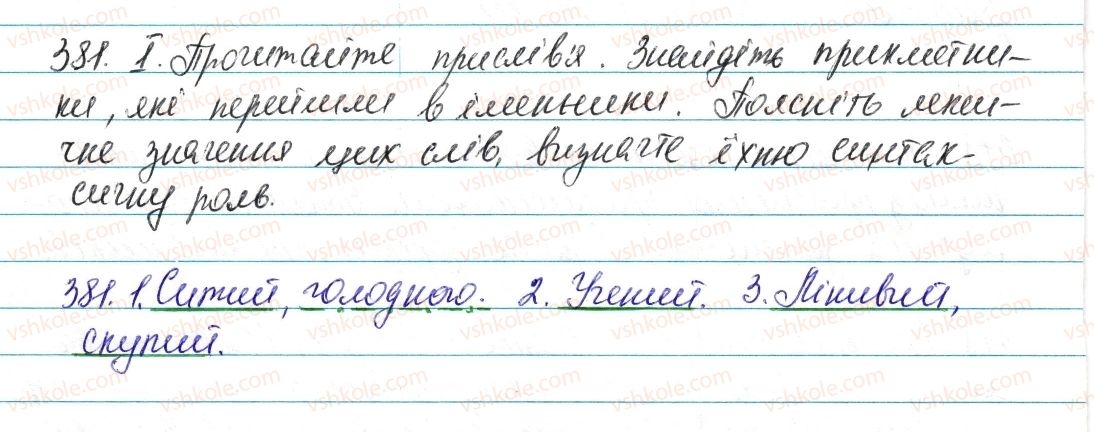 381. І. Прочитайте прислів'я. Знайдіть прикметни-
ки, які перейшли в іменники. Поясніть лекси-
чне значення цих слів, визначте їхню синтак-
сичну роль.
381. 1. Ситий, голодного. 2. Учений. 3. Лінивий,
скупий.